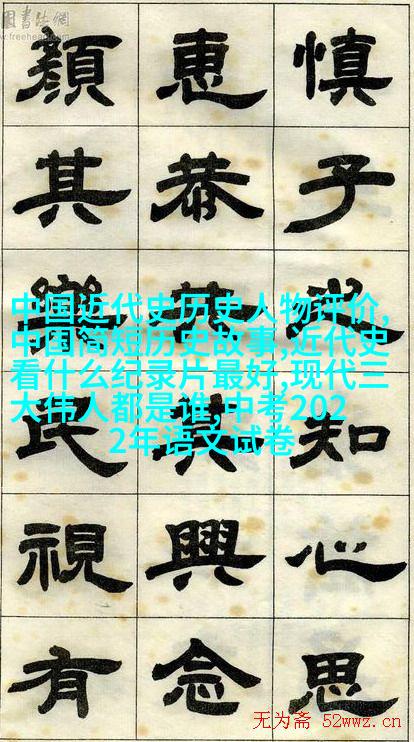 国書法網
慎子知心思
惠恭其興念
顏其樂民視有
中国近代史历史人物评价,
中国简短历史故事,近代史
看什么纪录片最好,现代三
大伟人都是谁,中考202
2年语文试卷
无为斋 52wwz.cn